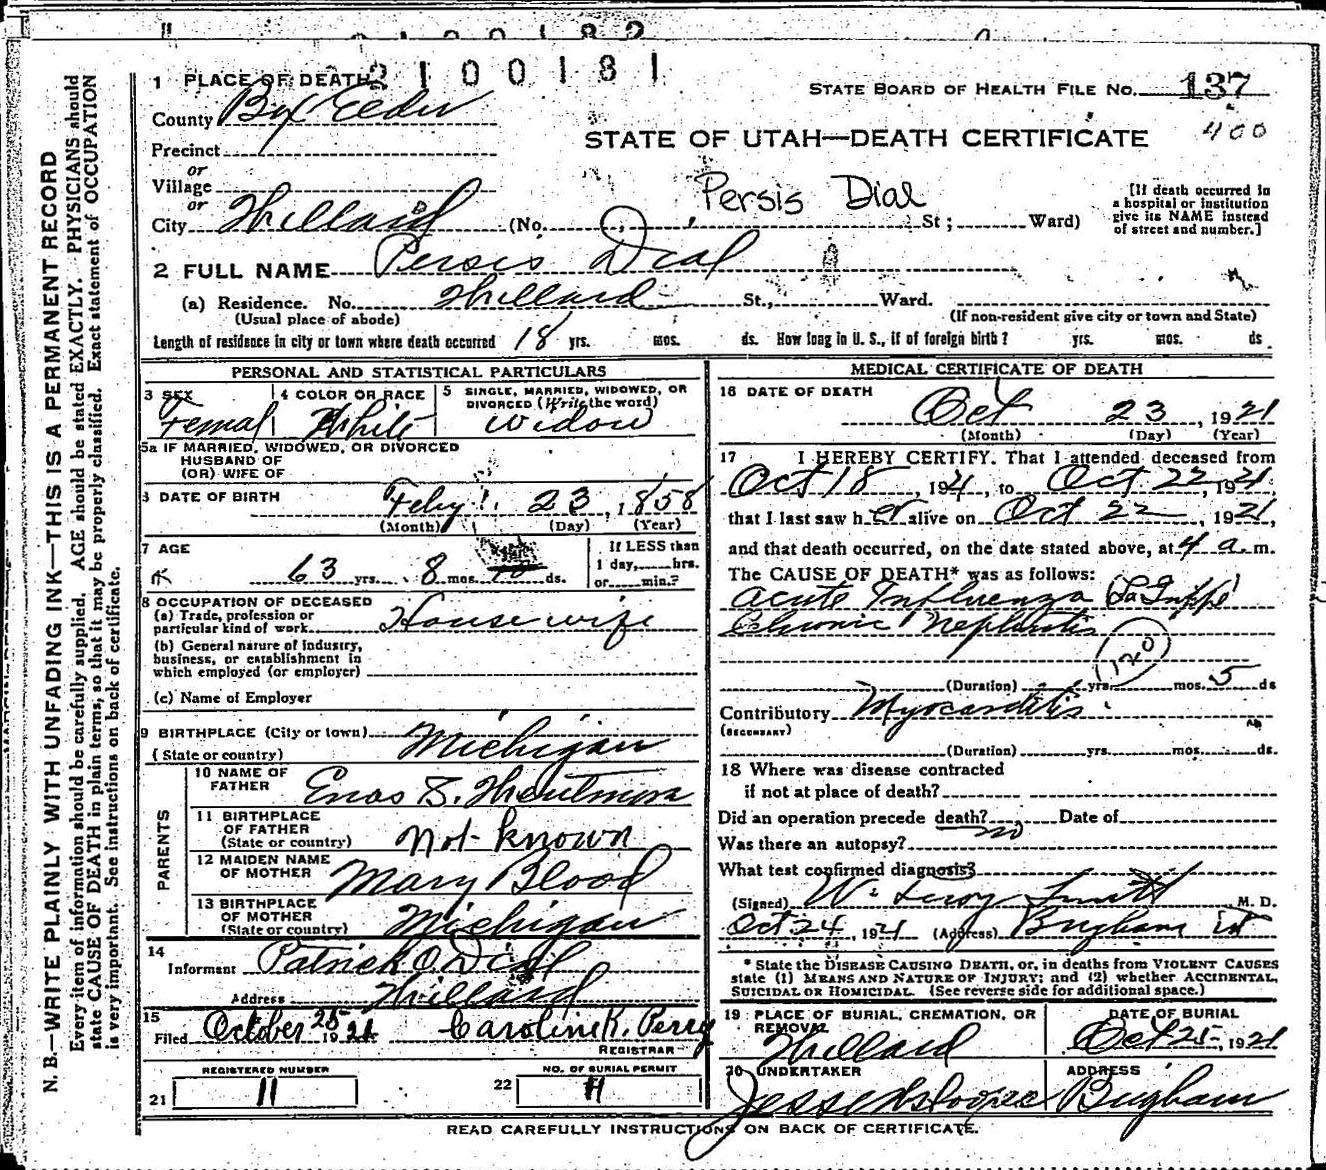 2100181
1 PLACE OF DEATH
STATE BOARD OF HEALTH FILE No. 137
County Box Elder
400
STATE OF UTAH—DEATH CERTIFICATE
Precinct
or
Village
or
Persis Dial
[If death occurred in a hospital or institution give its NAME instead of street and number.]
City Willard (No. St; Ward)
2 FULL NAME Persis Dial
(a) Residence. No. Willard St., Ward.
(Usual place of abode) (If non-resident give city or town and State)
Length of residence in city or town where death occurred 18 yrs. mos. ds. How long in U. S., if of foreign birth? yrs. mos. ds
PERSONAL AND STATISTICAL PARTICULARS
3 SEX 4 COLOR OR RACE 5 SINGLE, MARRIED, WIDOWED, OR
DIVORCED (Write the word)
Femal White Widow
5a IF MARRIED, WIDOWED, OR DIVORCED
HUSBAND OF
(OR) WIFE OF
6 DATE OF BIRTH Feby 23, 1858
(Month) (Day) (Year)
7 AGE If LESS than
63 yrs. 8 mos. ds. 1 day, hrs.
or min.?
8 OCCUPATION OF DECEASED
(a) Trade, profession or
particular kind of work House wife
(b) General nature of industry,
business, or establishment in
which employed (or employer)
(c) Name of Employer
9 BIRTHPLACE (City or town) Michigan
(State or country)
PARENTS
10 NAME OF
FATHER Enos
11 BIRTHPLACE
OF FATHER Not known
(State or country)
12 MAIDEN NAME
OF MOTHER Mary Blood
13 BIRTHPLACE
OF MOTHER Michigan
(State or country)
14
Informant Patrick O. Dial
Address Willard
15
Filed October 25 1921 Caroline K. Perry
REGISTRAR
REGISTERED NUMBER NO. OF BURIAL PERMIT
21 11 22 11
MEDICAL CERTIFICATE OF DEATH
16 DATE OF DEATH
Oct 23, 1921
(Month) (Day) (Year)
17 I HEREBY CERTIFY. That I attended deceased from
Oct 18, 1921, to Oct 22, 1921,
that I last saw her alive on Oct 22, 1921,
and that death occurred, on the date stated above, at 4 a.m.
The CAUSE OF DEATH* was as follows:
Acute Influenza (La Grippe)
Chronic Nephritis
120
(Duration) yrs. mos. 5 ds
Contributory Myocarditis
(SECONDARY)
(Duration) yrs. mos. ds.
18 Where was disease contracted
if not at place of death?
Did an operation precede death? no Date of
Was there an autopsy?
What test confirmed diagnosis?
(Signed) W. Leroy Smith M. D.
Oct 24, 1921 (Address) Brigham Ut
* State the DISEASE CAUSING DEATH, or, in deaths from VIOLENT CAUSES
state (1) MEANS AND NATURE OF INJURY; and (2) whether ACCIDENTAL,
SUICIDAL OR HOMICIDAL. (See reverse side for additional space.)
19 PLACE OF BURIAL, CREMATION, OR DATE OF BURIAL
REMOVAL
Willard Oct 25, 1921
20 UNDERTAKER ADDRESS
Brigham
READ CAREFULLY INSTRUCTIONS ON BACK OF CERTIFICATE.
N. B.—WRITE PLAINLY WITH UNFADING INK—THIS IS A PERMANENT RECORD
Every item of information should be carefully supplied. AGE should be stated EXACTLY. PHYSICIANS should
state CAUSE OF DEATH in plain terms, so that it may be properly classified. Exact statement of OCCUPATION
is very important. See instructions on back of certificate.